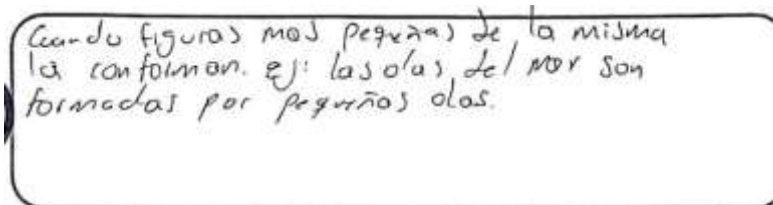 Cuando figuras mas pequeñas de la misma
la conforman. ej: las olas del mar son
formadas por pequeñas olas.